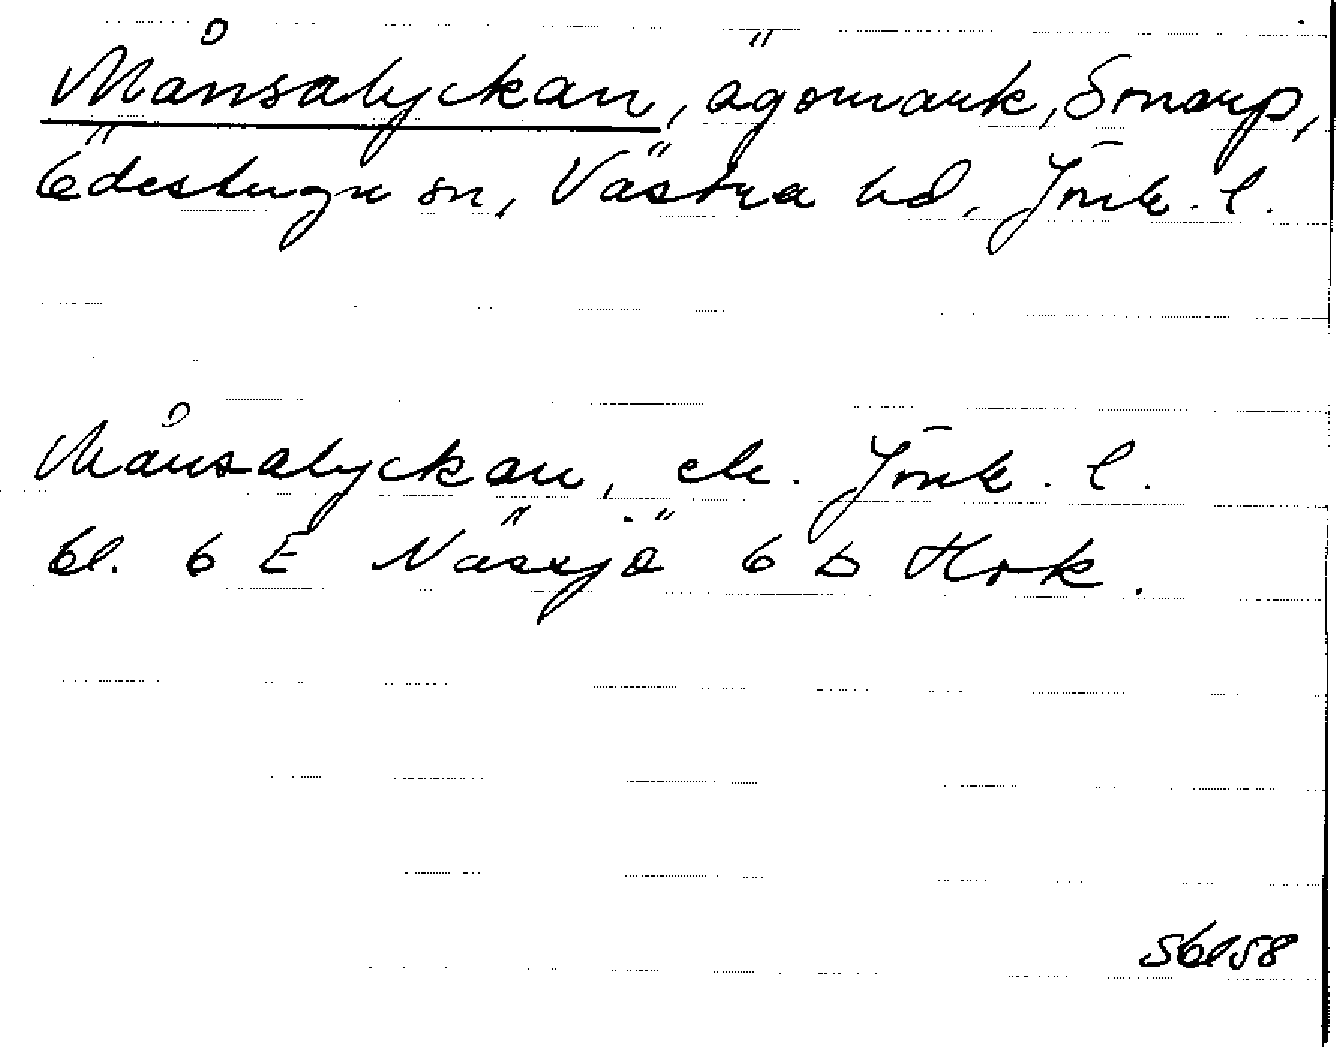 Månsalyckan, ägomark, Smarp,
Ödestugu sn, Västra hd, Jönk. l.
Månsalyckan, ek. Jönk. l.
bl. 6 E Nässjö 6 D Hok.